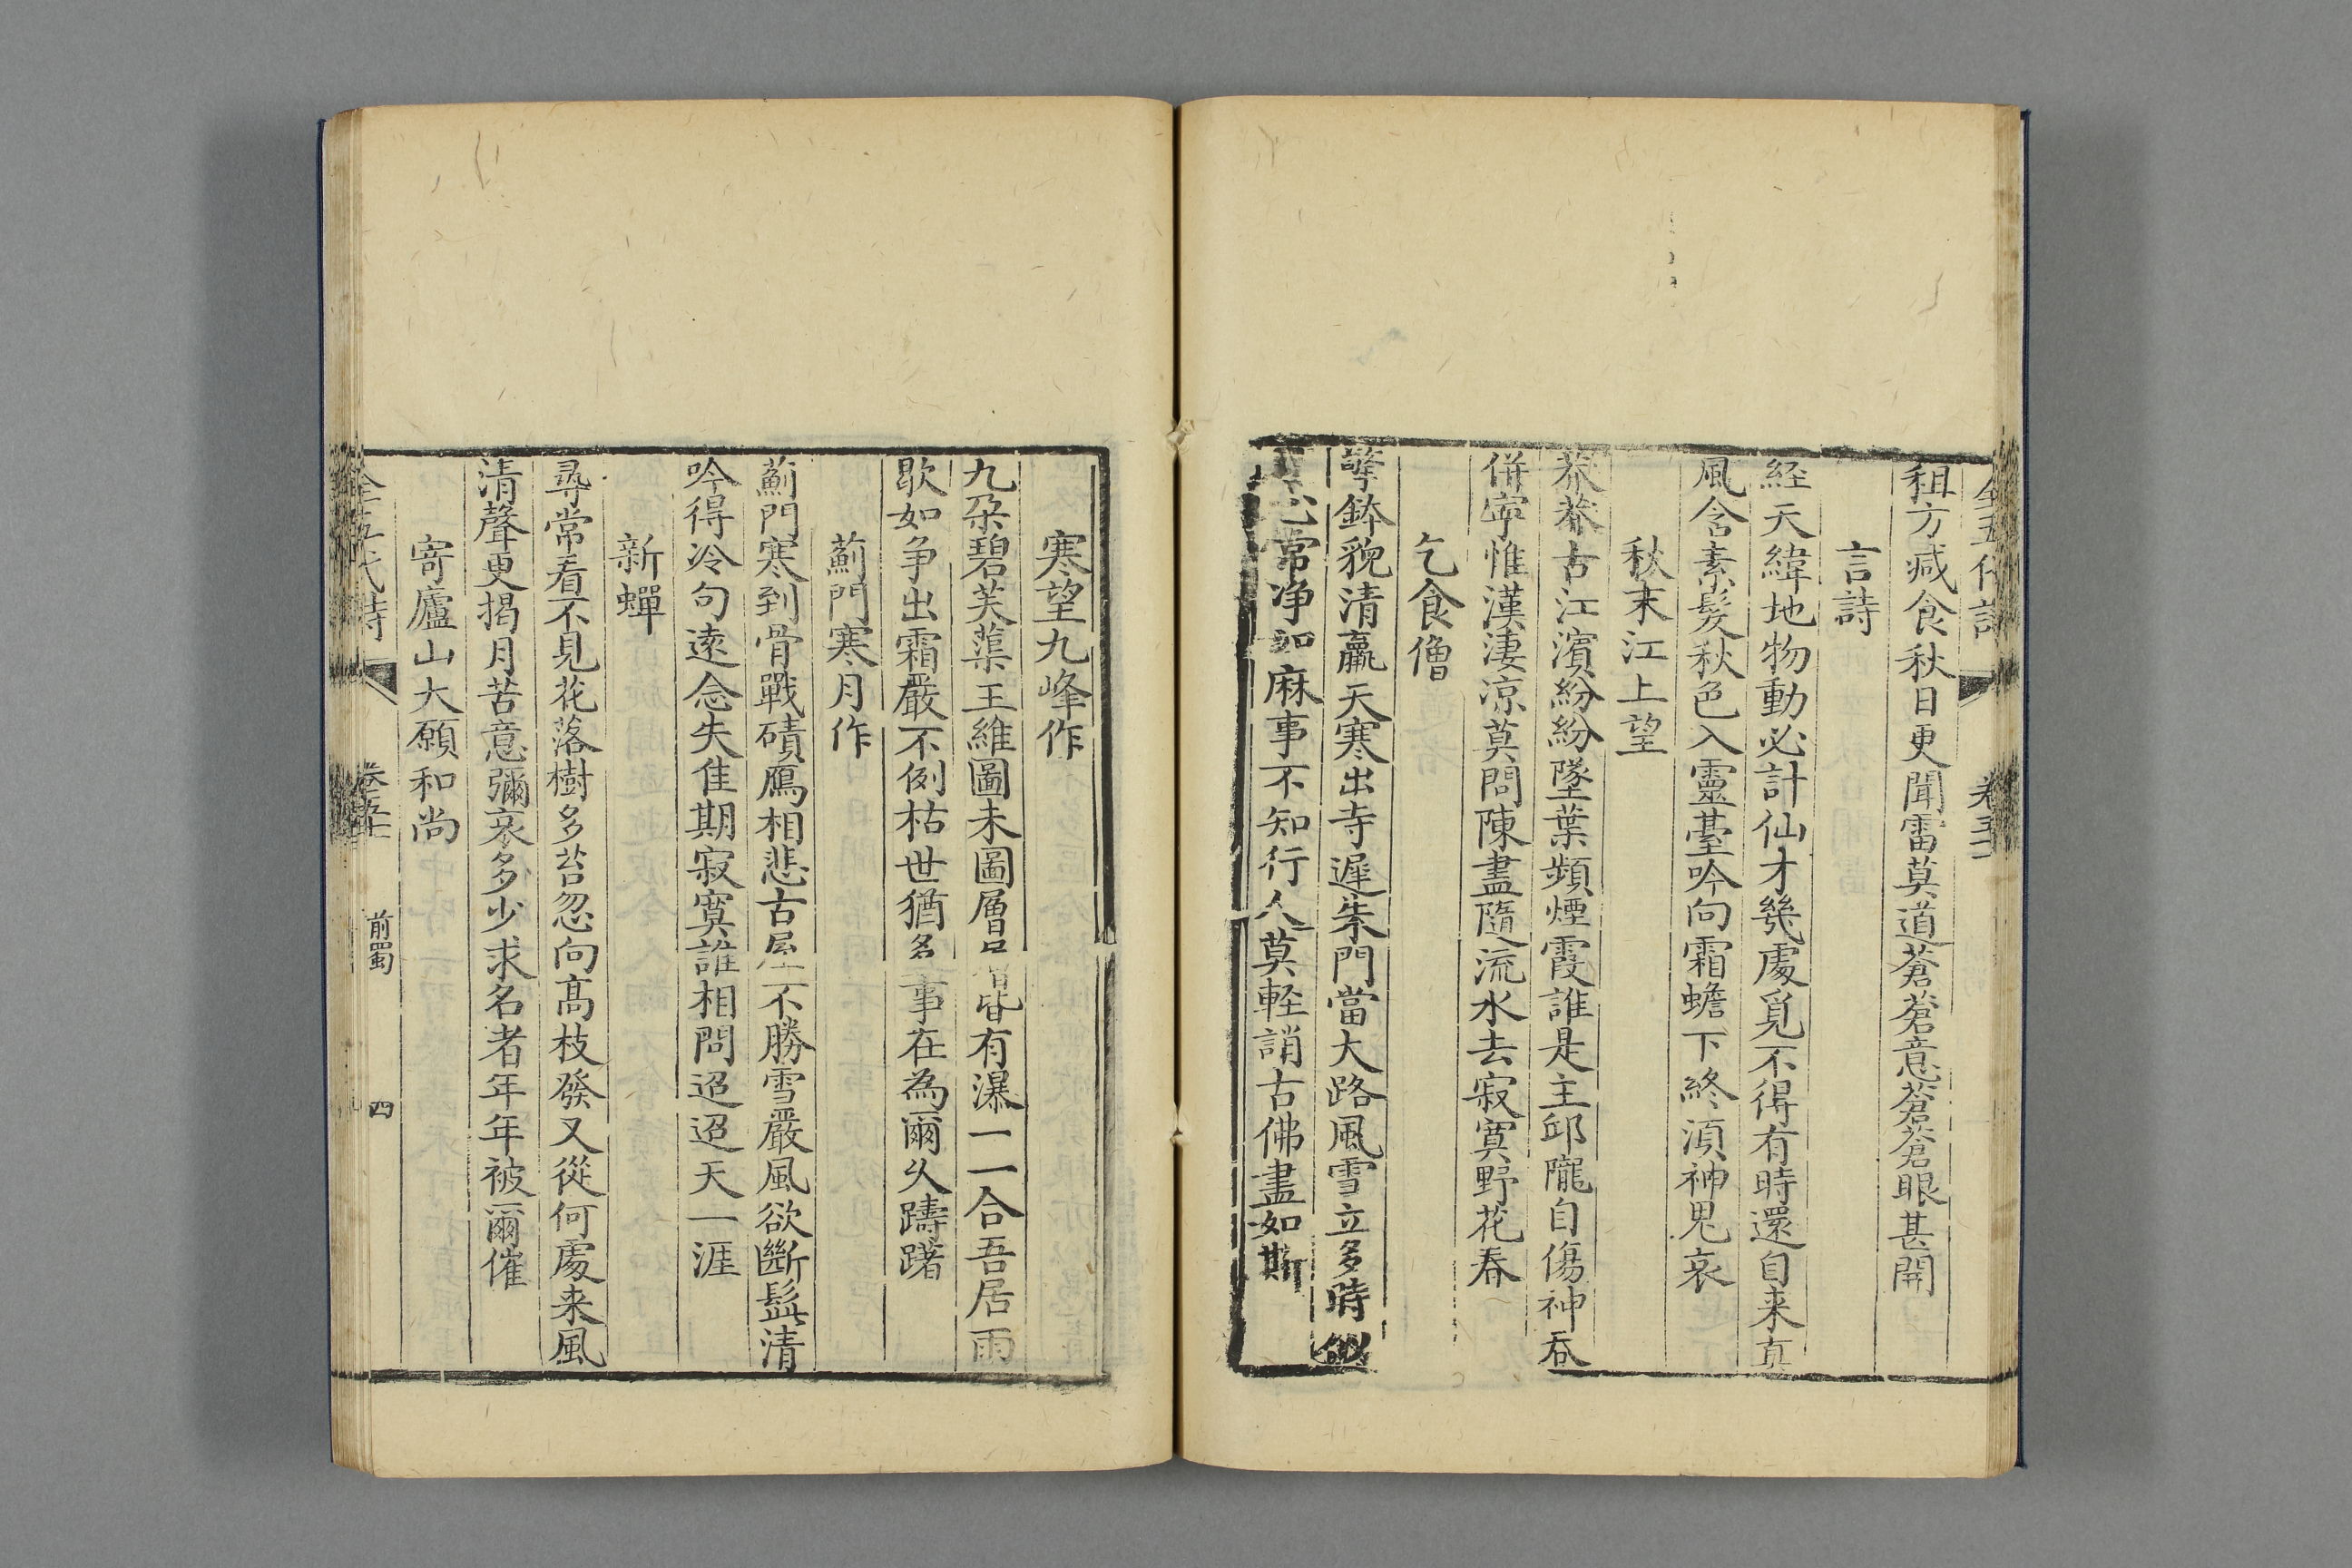 全五代詩 卷五十一
租方減食秋日更聞雷莫道蒼蒼意蒼蒼眼甚開
言詩
経天緯地物動必計仙才幾處覓不得有時還自来真
風含素髮秋色入靈臺吟向霜蟾下終湏神鬼哀
秋末江上望
莽莽古江濱紛紛墜葉頻煙霞誰是主邱隴自傷神吞
併寧惟漢淒凉莫問陳盡隨流水去寂寞野花春
乞食僧
擎鉢貌清羸天寒出寺遲朱門當大路風雪立多時似
心常净如麻事不知行人莫輕誚古佛盡如斯
寒望九峰作
九朵碧芙蕖王維圖未圖層層皆有瀑一一合吾居雨
歇如争出霜嚴不例枯世猶多事在為爾久躊躇
薊門寒月作
薊門寒到骨戰磧鴈相悲古屋不勝雪嚴風欲斷髭清
吟得冷句遠念失佳期寂寞誰相問迢迢天一涯
新蟬
尋常看不見花落樹多苔忽向高枝發又從何處来風
清聲更揭月苦意彌哀多少求名者年年被爾催
寄廬山大願和尚
全五代詩 卷五十一 前蜀 四